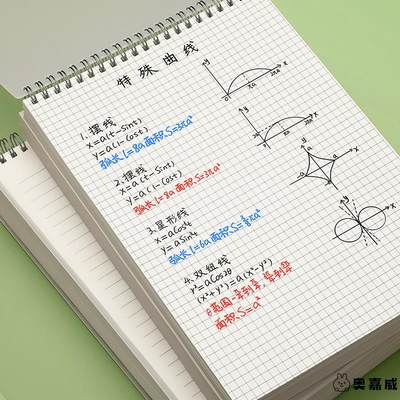 特殊曲线
1.摆线
x=a(t-sint)
y=a(1-cost)
弧长l=8a 面积S=3πa²
2.摆线
x=a(t-sint)
y=a(1-cost)
弧长l=8a 面积S=3πa²
3.星形线
x=acost
y=asint
弧长l=6a 面积S=⅜πa²
4.双纽线
r²=acos2θ
(x²+y²)=a(x²-y²)
θ范围
面积S=a²
奥嘉威